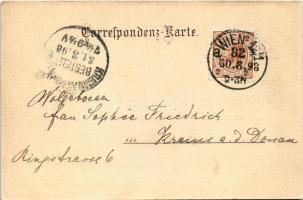 Correspondenz-Karte.
WIEN
82
30.8.98
BESTELLT
31.8.98
Wolgeboren
Frau Sophie Friedrich
in Krems a. d. Donau
Ringstrasse 6